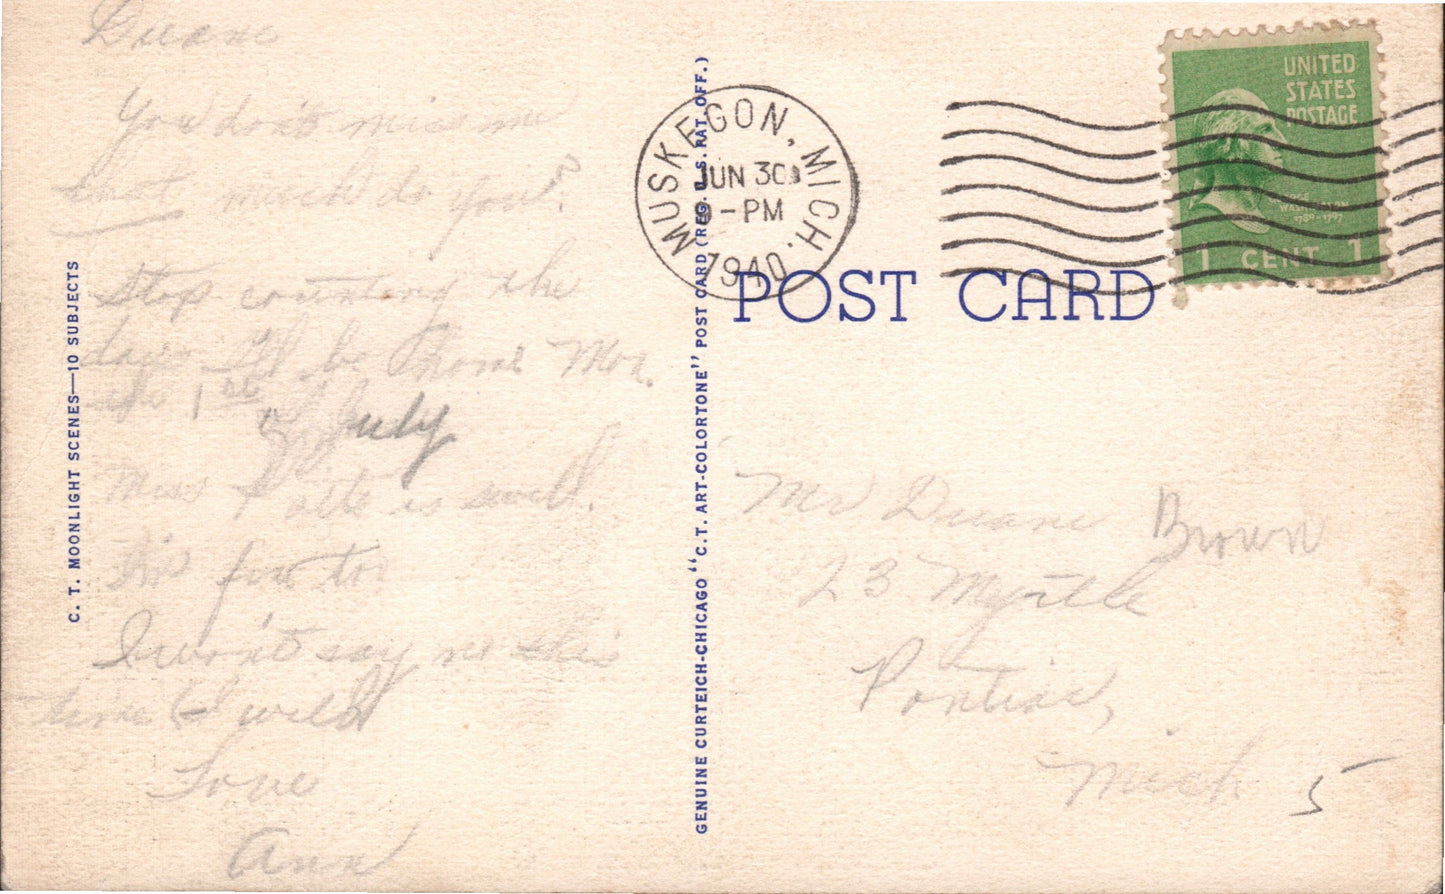 Duane
You don't miss me
that much do you?
Stop counting the
days I'll be home Mon.
the 1st
of July
Miss is well.
I'm for
I won't say no this
time I will
Love
Ann
C. T. MOONLIGHT SCENES—10 SUBJECTS
GENUINE CURTEICH-CHICAGO "C.T. ART-COLORTONE" POST CARD (REG. U.S. PAT. OFF.)
MUSKEGON, MICH.
JUN 30
PM
1940
UNITED
STATES
POSTAGE
WASHINGTON
1789-1797
1 CENT 1
POST CARD
Mr Duane Brown
23 Myrtle
Pontiac,
Mich 5